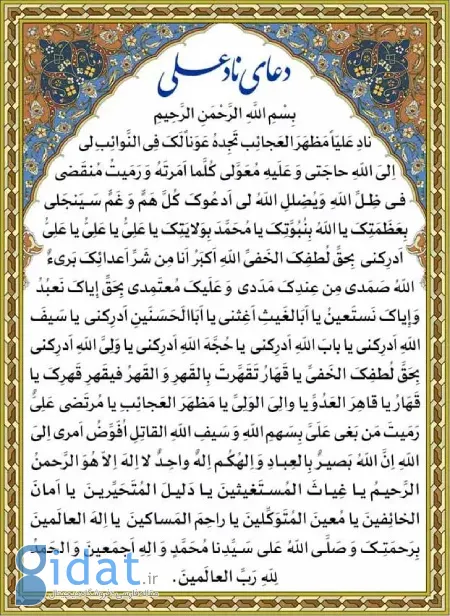 دعای ناد علی
بِسْمِ اللهِ الرَّحْمنِ الرَّحیمِ
نادِ عَلیّاً مَظهَرَ العَجائِبِ تَجِدهُ عَوناً لَکَ فِی النَّوائِبِ لی
اِلیَ اللهِ حاجَتی وَ عَلَیهِ مُعَوَّلی کُلَّما اَمَرتَهُ وَ رَمیتُ مُنقَضی
فی ظِلِّ اللهِ وَ یُضلِلِ اللهُ لی اَدعُوکَ کُلَّ هَمٍّ وَ غَمٍّ سَیَنجَلی
بِعَظَمَتِکَ یا اللهُ بِنُبُوَّتِکَ یا مُحَمَّدُ بِوِلایَتِکَ یا عَلِیُّ یا عَلِیُّ یا عَلِیُّ
اَدرِکنی بِحَقِّ لُطفِکَ الخَفیِّ اللهُ اَکبَرُ اَنا مِن شَرِّ اَعدائِکَ بَریءٌ
اللهُ صَمَدی مِن عِندِکَ مَدَدی وَ عَلَیکَ مُعتَمِدی بِحَقِّ اِیاکَ نَعبُدُ
وَ اِیاکَ نَستَعینُ یا اَبالغَیثِ اَغِثنی یا اَبَاالحَسَنَینِ اَدرِکنی یا سَیفَ
اللهِ اَدرِکنی یا بابَ اللهِ اَدرِکنی یا حُجَّهَ اللهِ اَدرِکنی یا وَلِیَّ اللهِ اَدرِکنی
بِحَقِّ لُطفِکَ الخَفیِّ یا قَهّارُ تَقَهَّرتَ بِالقَهرِ وَ القَهرُ فیقَهرِ قَهرِکَ یا
قَهّارُ یا قاهِرَ العَدُوِّ یا والِیَ الوَلِیِّ یا مَظهَرَ العَجائِبِ یا مُرتَضی عَلِیُّ
رَمَیتَ مَن بَغی عَلَیَّ بِسَهمِ اللهِ وَ سَیفِ اللهِ القاتِلِ اُفَوِّضُ اَمری اِلیَ
اللهِ اِنَّ اللهَ بَصیرٌ بِالعِبادِ وَ اِلهُکُم اِلهٌ واحِدٌ لا اِلهَ اِلاّ هُوَ الرَّحمنُ
الرَّحیمُ یا غِیاثَ المُستَغیثینَ یا دَلیلَ المُتَحَیِّرینَ یا اَمانَ
الخائِفینَ یا مُعینَ المُتَوَکِّلینَ یا راحِمَ المَساکینَ یا اِلهَ العالَمینَ
بِرَحمَتِکَ وَ صَلَّی اللهُ عَلی سَیِّدِنا مُحَمَّدٍ وَ الِهِ اَجمَعینَ وَ الحَمدُ
لِلّهِ رَبِّ العالَمینَ.
gidat.ir